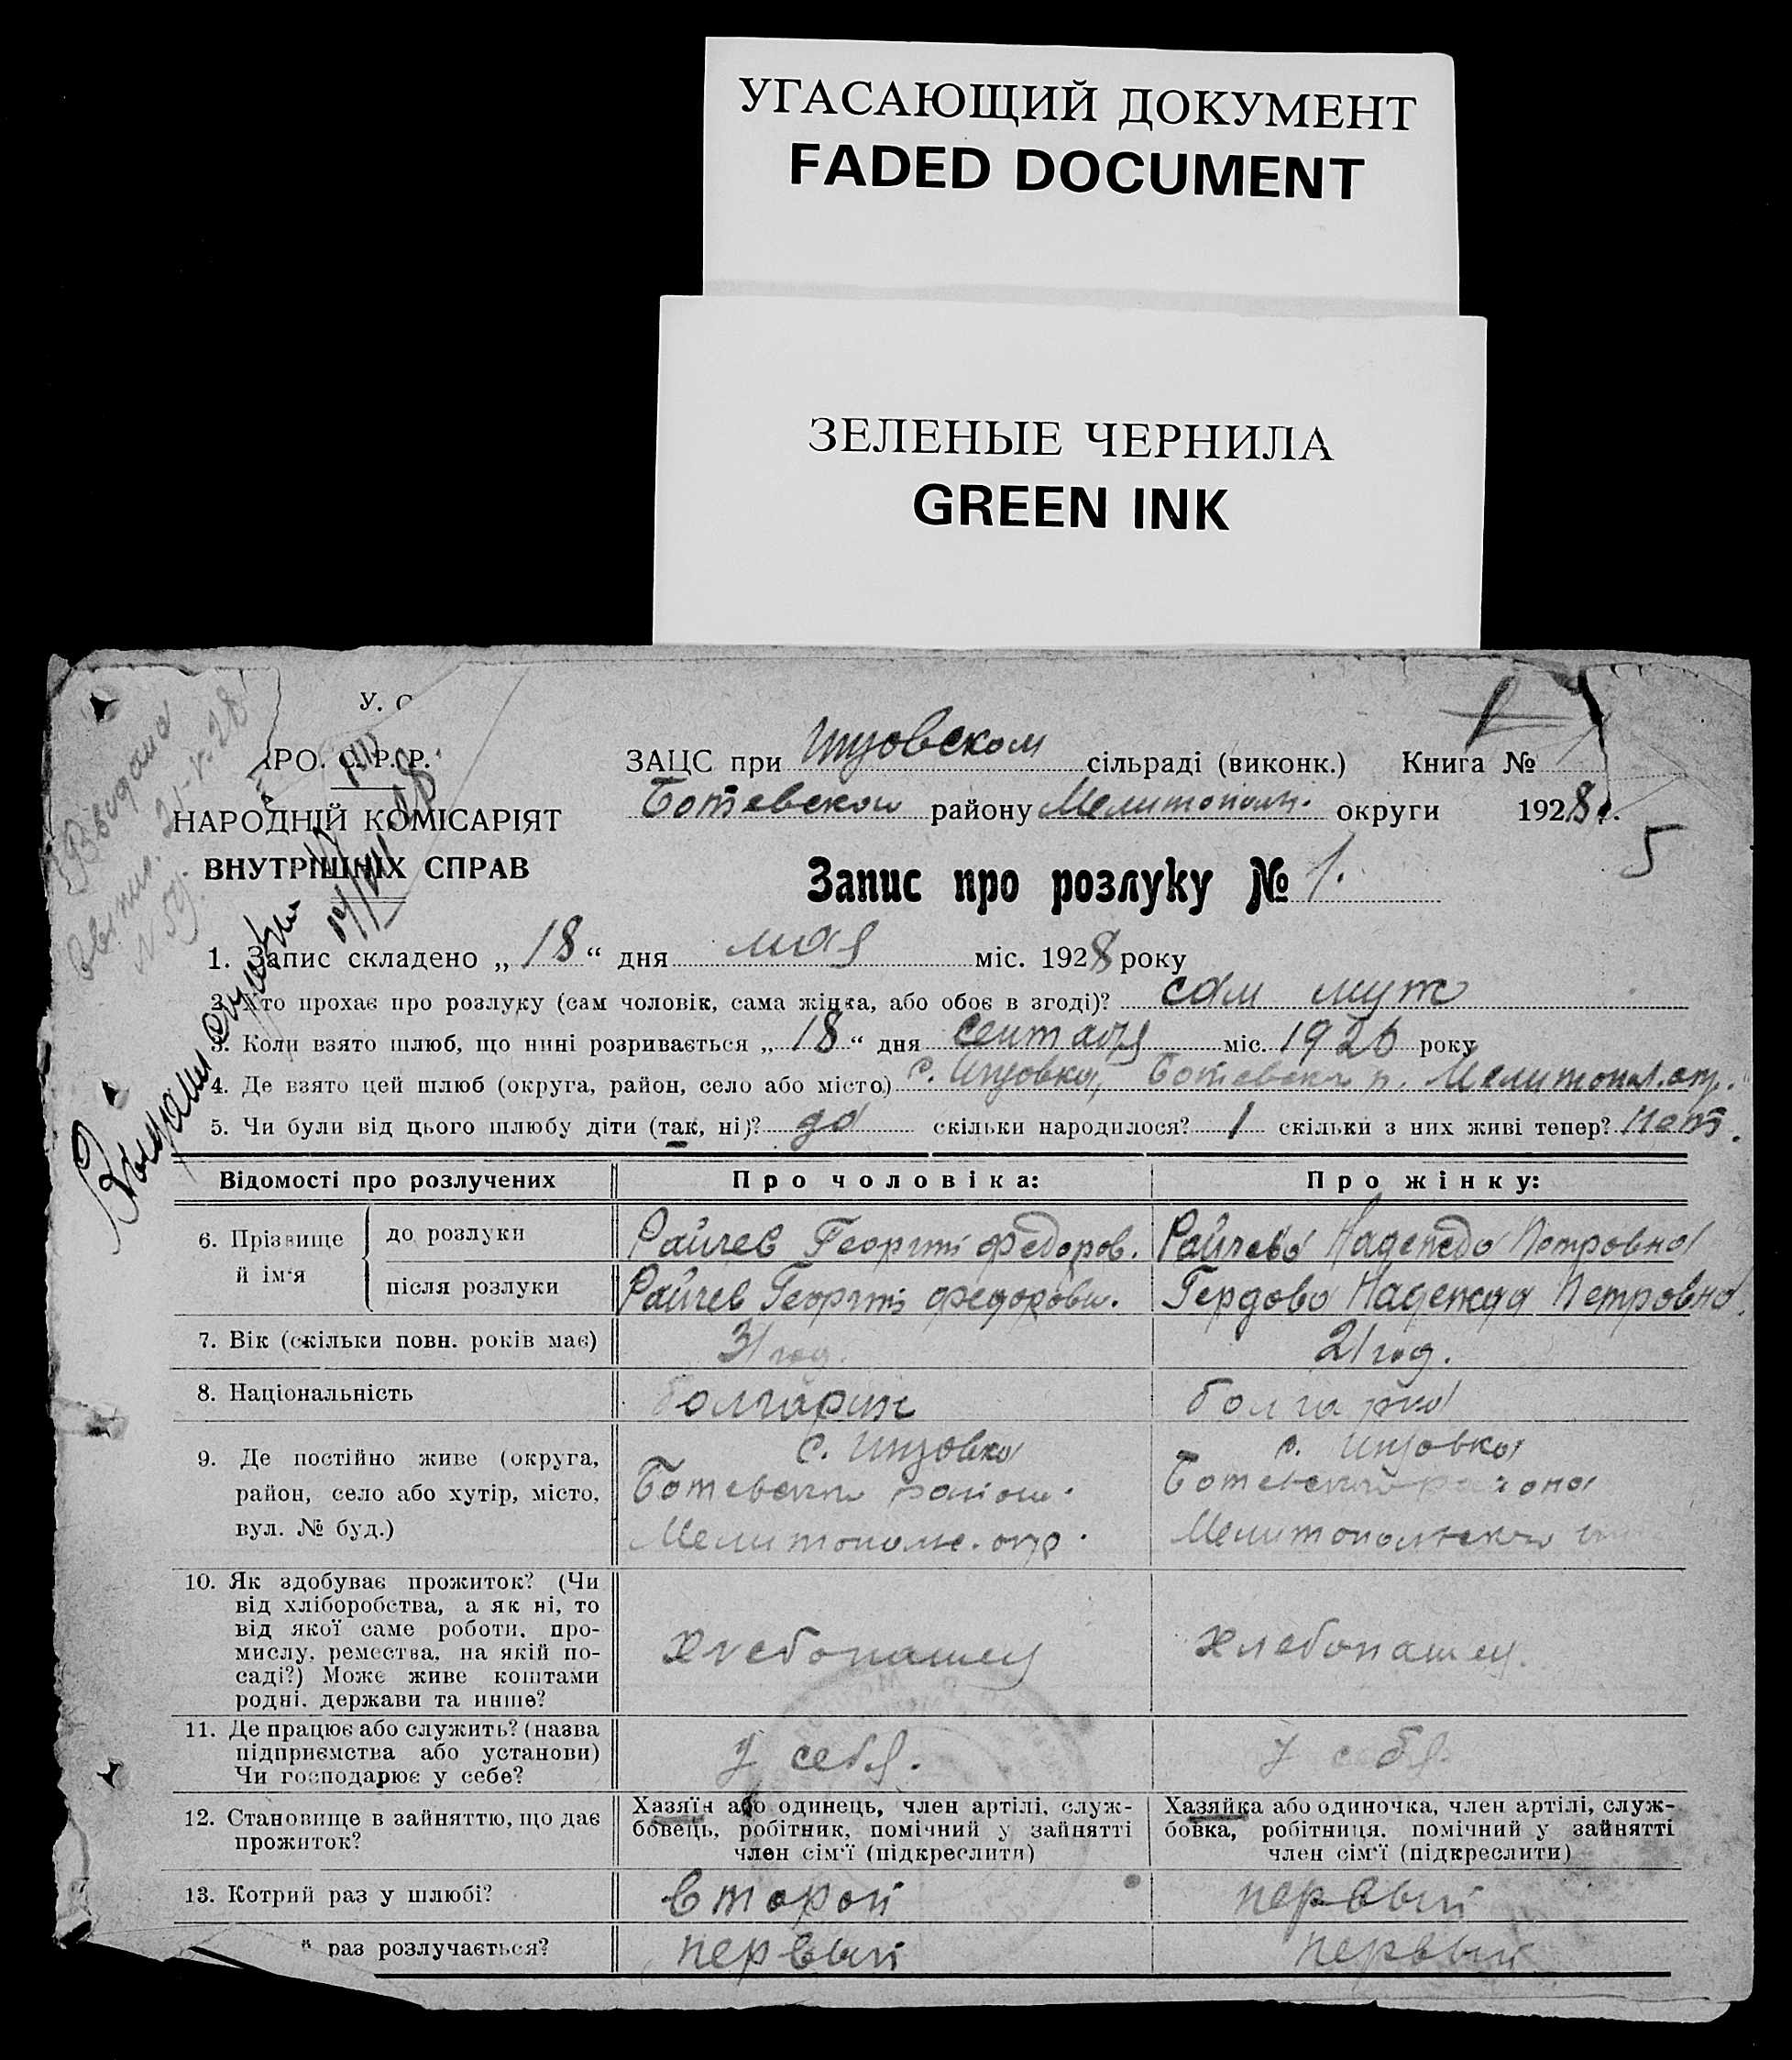 УГАСАЮЩИЙ ДОКУМЕНТ
FADED DOCUMENT
ЗЕЛЕНЫЕ ЧЕРНИЛА
GREEN INK
У. С
РО. С. Р. Р.
НАРОДНІЙ КОМІСАРІЯТ
ВНУТРІШНІХ СПРАВ
ЗАЦС при Инзовском сільраді (виконк.) Книга №
Ботевском району Мелитопольс. округи 1928 р.
5
Запис про розлуку № 1.
1. Запис складено „ 18 “ дня мая міс. 1928 року
2. Хто прохає про розлуку (сам чоловік, сама жінка, або обоє в згоді)? сам муж
3. Коли взято шлюб, що нині розривається „ 18 “ дня сентября міс. 1926 року
4. Де взято цей шлюб (округа, район, село або місто) с. Инзовка, Ботевского р. Мелитопол. окр.
5. Чи були від цього шлюбу діти (так, ні)? да скільки народилося? 1 скільки з них живі тепер? Нет.
Відомості про розлучених Про чоловіка: Про жінку:
6. Прізвище й ім‘я
до розлуки Райчев Георгий Федоров. Райчева Надежда Петровна
після розлуки Райчев Георгий Федорови. Гердова Надежда Петровна
7. Вік (скільки повн. років має) 31 год. 21 год.
8. Національність болгарин болгарка
9. Де постійно живе (округа, с. Инзовка с. Инзовка
район, село або хутір, місто, Ботевского района Ботевского района
вул. № буд.) Мелитопольс. окр. Мелитопольского
10. Як здобуває прожиток? (Чи
від хліборобства, а як ні, то
від якої саме роботи, про-
мислу, ремества, на якій по-
саді?) Може живе коштами
родні, держави та инше?
Хлебопашец Хлебопашец.
11. Де працює або служить? (назва
підприємства або установи)
Чи господарює у себе?
у себя. у себя.
12. Становище в зайняттю, що дає
прожиток?
Хазяїн або одинець, член артілі, служ-
бовець, робітник, помічний у зайнятті
член сім‘ї (підкреслити)
Хазяйка або одиночка, член артілі, служ-
бовка, робітниця, помічний у зайнятті
член сім‘ї (підкреслити)
13. Котрий раз у шлюбі? второй первый
раз розлучається? первый первый